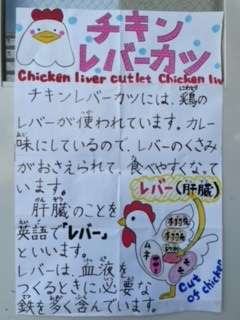 チキン
レバーカツ
Chicken liver cutlet Chicken liv
チキンレバーカツには、鶏の
レバーが使われています。カレー
味にしているので、レバーのくさみ
がおさえられて、食べやすくなて
います。
肝臓のことを
英語で「レバー」
といいます。
レバーは、血液を
つくるときに必要な
鉄を多く含んでいます。
レバー(肝臓)
ムネ
Cut
of chicken